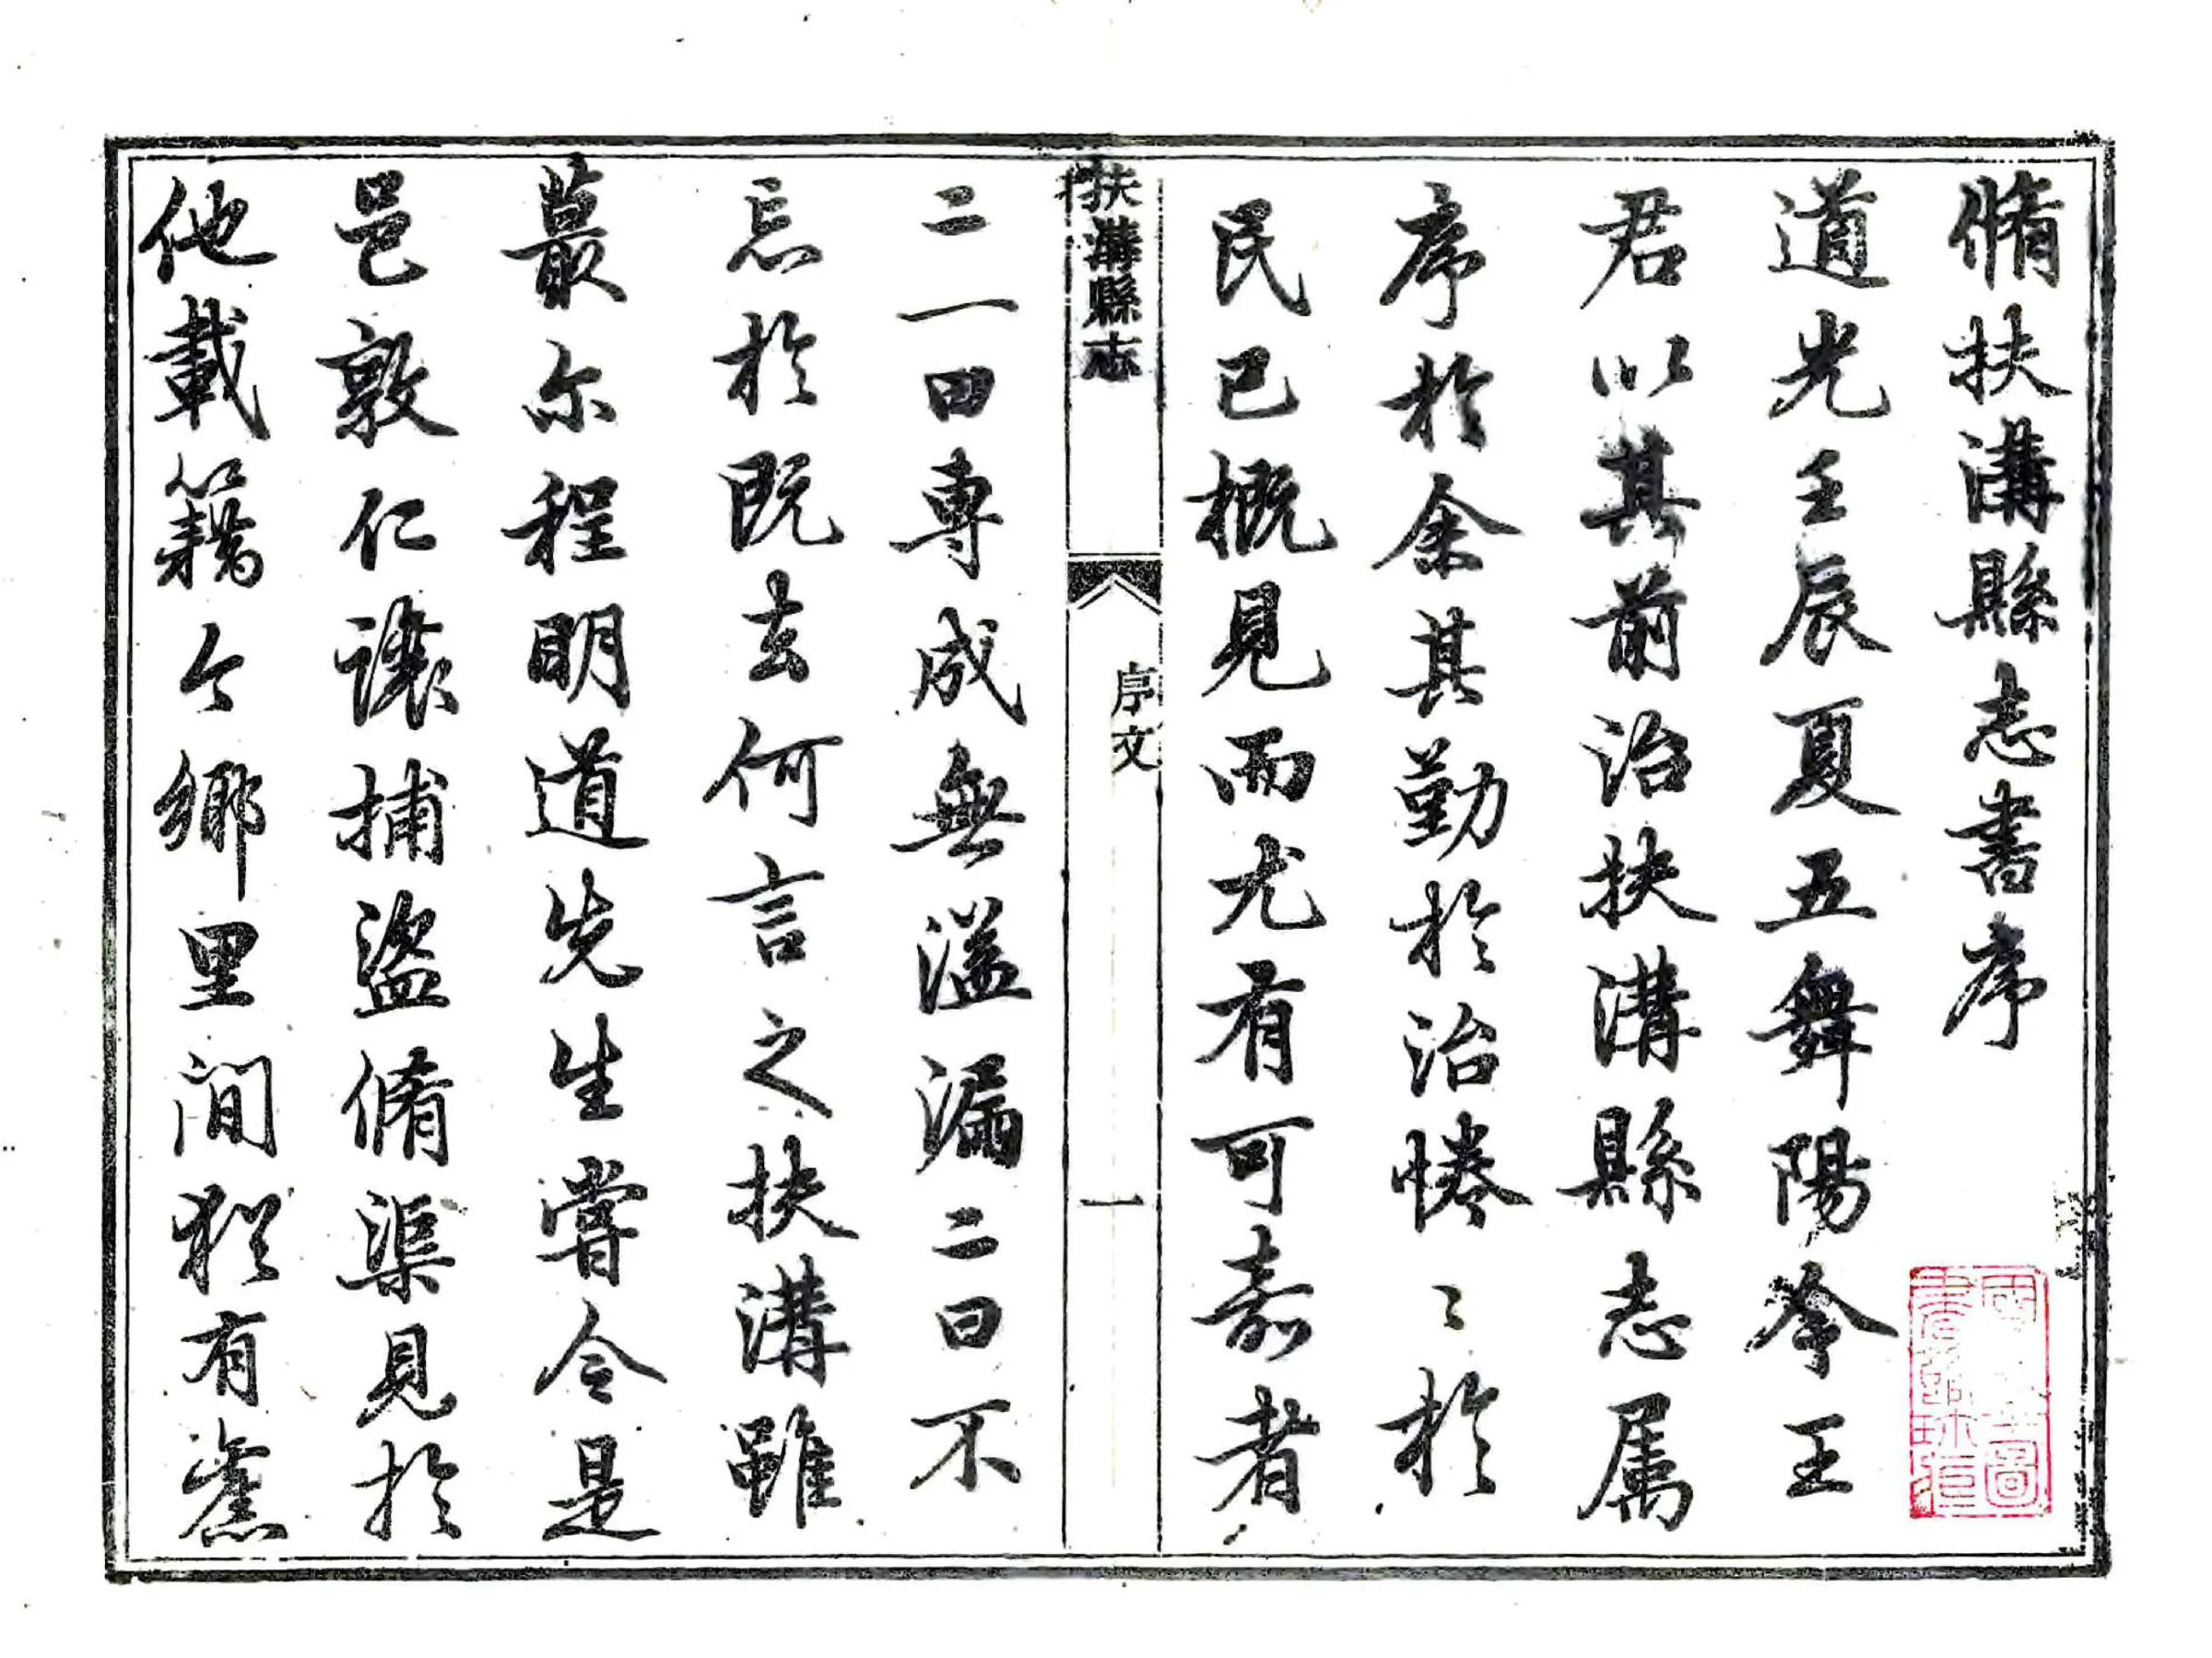 脩扶溝縣志書序
道光壬辰夏五舞陽令王
君以其前治扶溝縣志属
序於余其勤於治惓〻於
民已概見而尤有可嘉者
扶溝縣志
序文
一
二一曰專成無濫漏二曰不
忘於既去何言之扶溝雖
蕞尔程明道先生嘗令是
邑敦仁讓捕盜脩渠見於
他載籍今鄉里間猶有舊